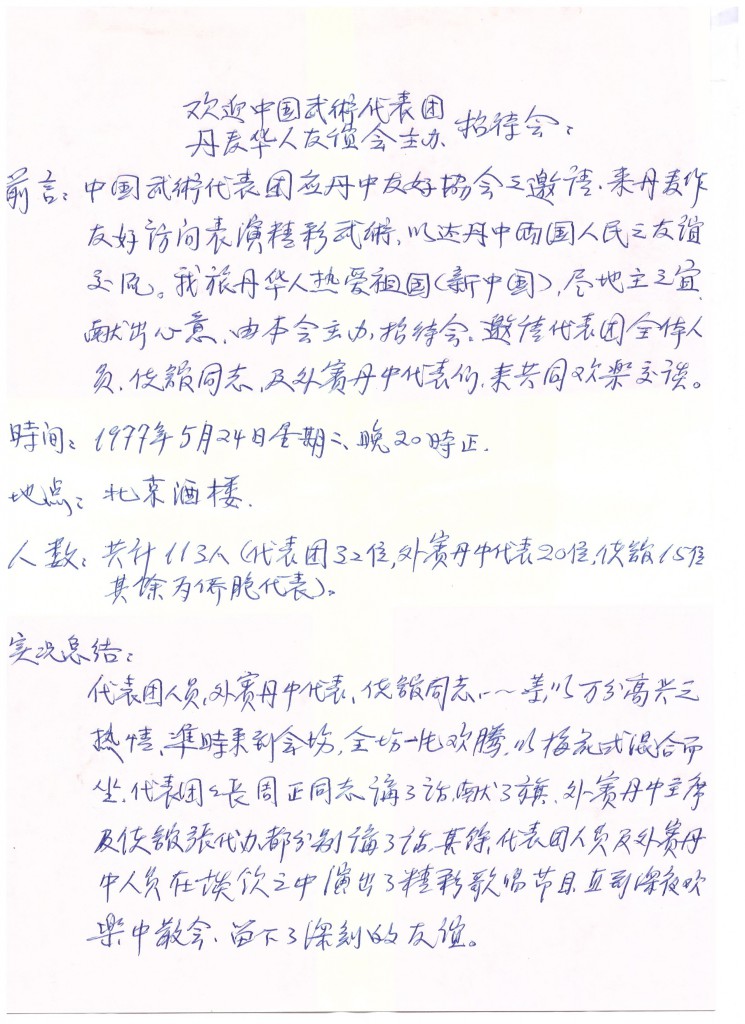 欢迎中国武術代表团
丹麦华人友谊会主办 招待会：
前言：中国武術代表团应丹中友好协会之邀请，来丹麦作
友好访问表演精彩武術，以达丹中两国人民之友谊
交流。我旅丹华人热爱祖国（新中国），尽地主之宜，
献出心意，由本会主办招待会。邀请代表团全体人
员，使館同志，及外宾丹中代表们，来共同欢乐交谈。
時间：1977年5月24日星期二、晚20時正.
地点：北京酒楼.
人数：共计113人（代表团32位，外宾丹中代表20位，使館15位
其馀为侨胞代表）。
实况总结：
代表团人员，外宾丹中代表、使館同志，一一差以万分高兴之
热情、準時来到会场，全场一片欢腾，以梅花式混合而
坐，代表团团長周正同志講了话，献了旗，外宾丹中主席
及使館張代办，都分别講了话，其馀，代表团人员及外宾丹
中人员在谈饮之中演出了精彩歌唱节目，直到深夜欢
乐中散会，留下了深刻的友谊。